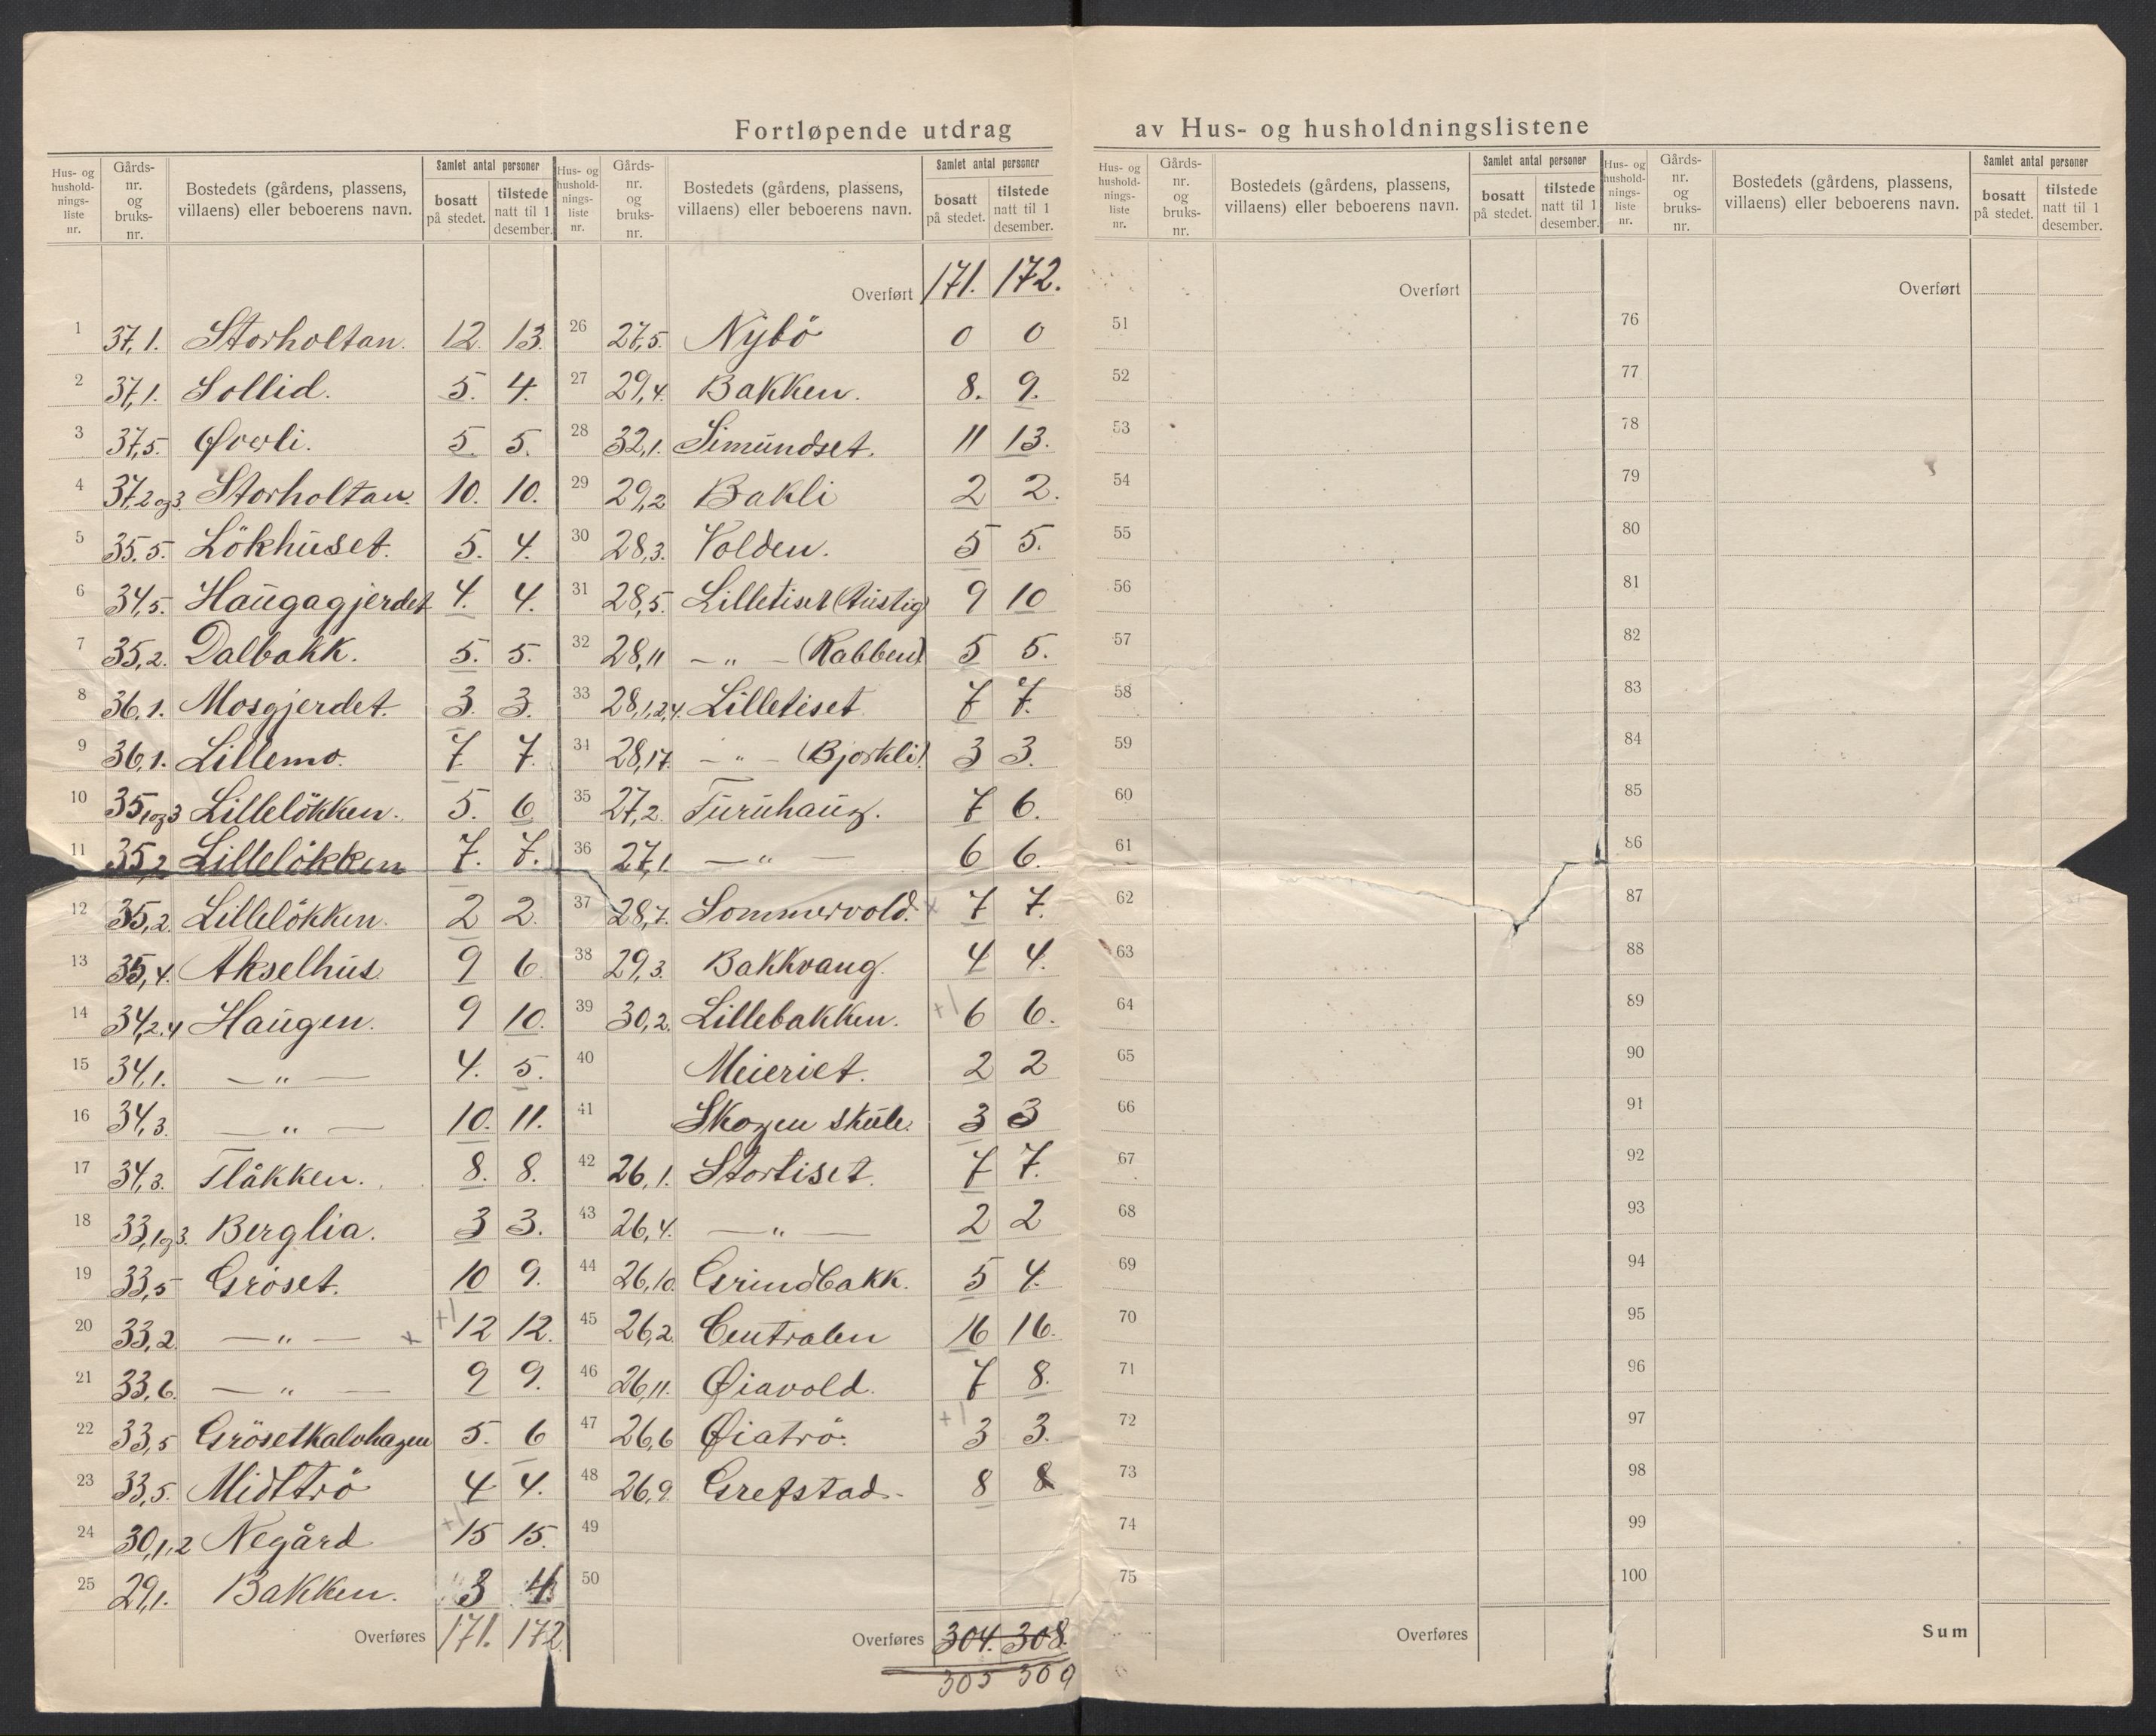 Fortløpende utdrag av Hus- og husholdningslistene
Hus- og husholdningsliste nr. | Gårds-nr. og bruks-nr. | Bostedets (gårdens, plassens, villaens) eller beboerens navn. | Samlet antal personer | bosatt på stedet. | tilstede natt til 1 desember.
1 37,1. Storholtan. 12. 13.
2 37,1. Sollid. 5. 4.
3 37,5. Øverli. 5. 5.
4 37,2og3. Storholtan. 10. 10.
5 35,5. Lökhuset. 5. 4.
6 34,5. Haugagjerdet 4. 4.
7 35,2. Dalbakk. 5. 5.
8 36,1. Mosgjerdet. 3. 3.
9 36,1. Lillemo. 7 7.
10 35,1og3 Lillelökken. 5. 6
11 35,2 Lillelökken 7. 7.
12 35,2. Lillelökken. 2 2.
13 35,4. Akselhus 9 6
14 34,2.4 Haugen. 9 10.
15 34,1. —"— 4. 5.
16 34,3. —"— 10. 11.
17 34,3. Flåkken. 8. 8.
18 33,1og3. Berglia. 3 3.
19 33,5 Gröset. 10 9.
20 33,2. —"— x +1 12 12.
21 33,6. —"— 9 9.
22 33,5 Grösetkalvhagen 5. 6
23 33,5. Midttrö 4 4.
24 30,1,2 Negård +1 15 15.
25 29,1. Bakken. 3 4
Overføres 171. 172.
Hus- og husholdningsliste nr. | Gårds-nr. og bruks-nr. | Bostedets (gårdens, plassens, villaens) eller beboerens navn. | Samlet antal personer | bosatt på stedet. | tilstede natt til 1 desember.
Overført 171. 172.
26 27,5. Nybö 0 0
27 29,4. Bakken. 8. 9.
28 32,1. Simundset. 11 13.
29 29,2 Bakli 2 2.
30 28,3. Volden. 5 5.
31 28,5. Lilletiset (Austig) 9 10
32 28,11 —"— (Rabben) 5 5.
33 28,1,2,4. Lilletiset 7 7.
34 28,17. —"— (Bjorkli) 3 3.
35 27,2. Furuhaug. 7 6.
36 27,1. —"— 6 6.
37 28,7. Sommervold. x 7 7.
38 29,3. Bakkvang. 4 4.
39 30,2. Lillebakken. +1 6 6.
40 Meieriet. 2 2
41 Skogen skule. 3 3
42 26,1. Stortiset. 7 7.
43 26,4. —"— 2 2
44 26,10. Grindbakk. 5 4.
45 26,2. Centralen 16 16.
46 26,11. Øiavold. 7 8.
47 26,6 Øiatrö. +1 3 3.
48 26,9. Grefstad. 8 8
49
50
Overføres 304. 308.
305 309
Hus- og husholdningsliste nr. | Gårds-nr. og bruks-nr. | Bostedets (gårdens, plassens, villaens) eller beboerens navn. | Samlet antal personer | bosatt på stedet. | tilstede natt til 1 desember.
Overført
51
52
53
54
55
56
57
58
59
60
61
62
63
64
65
66
67
68
69
70
71
72
73
74
75
Overføres
Hus- og husholdningsliste nr. | Gårds-nr. og bruks-nr. | Bostedets (gårdens, plassens, villaens) eller beboerens navn. | Samlet antal personer | bosatt på stedet. | tilstede natt til 1 desember.
Overført
76
77
78
79
80
81
82
83
84
85
86
87
88
89
90
91
92
93
94
95
96
97
98
99
100
Sum